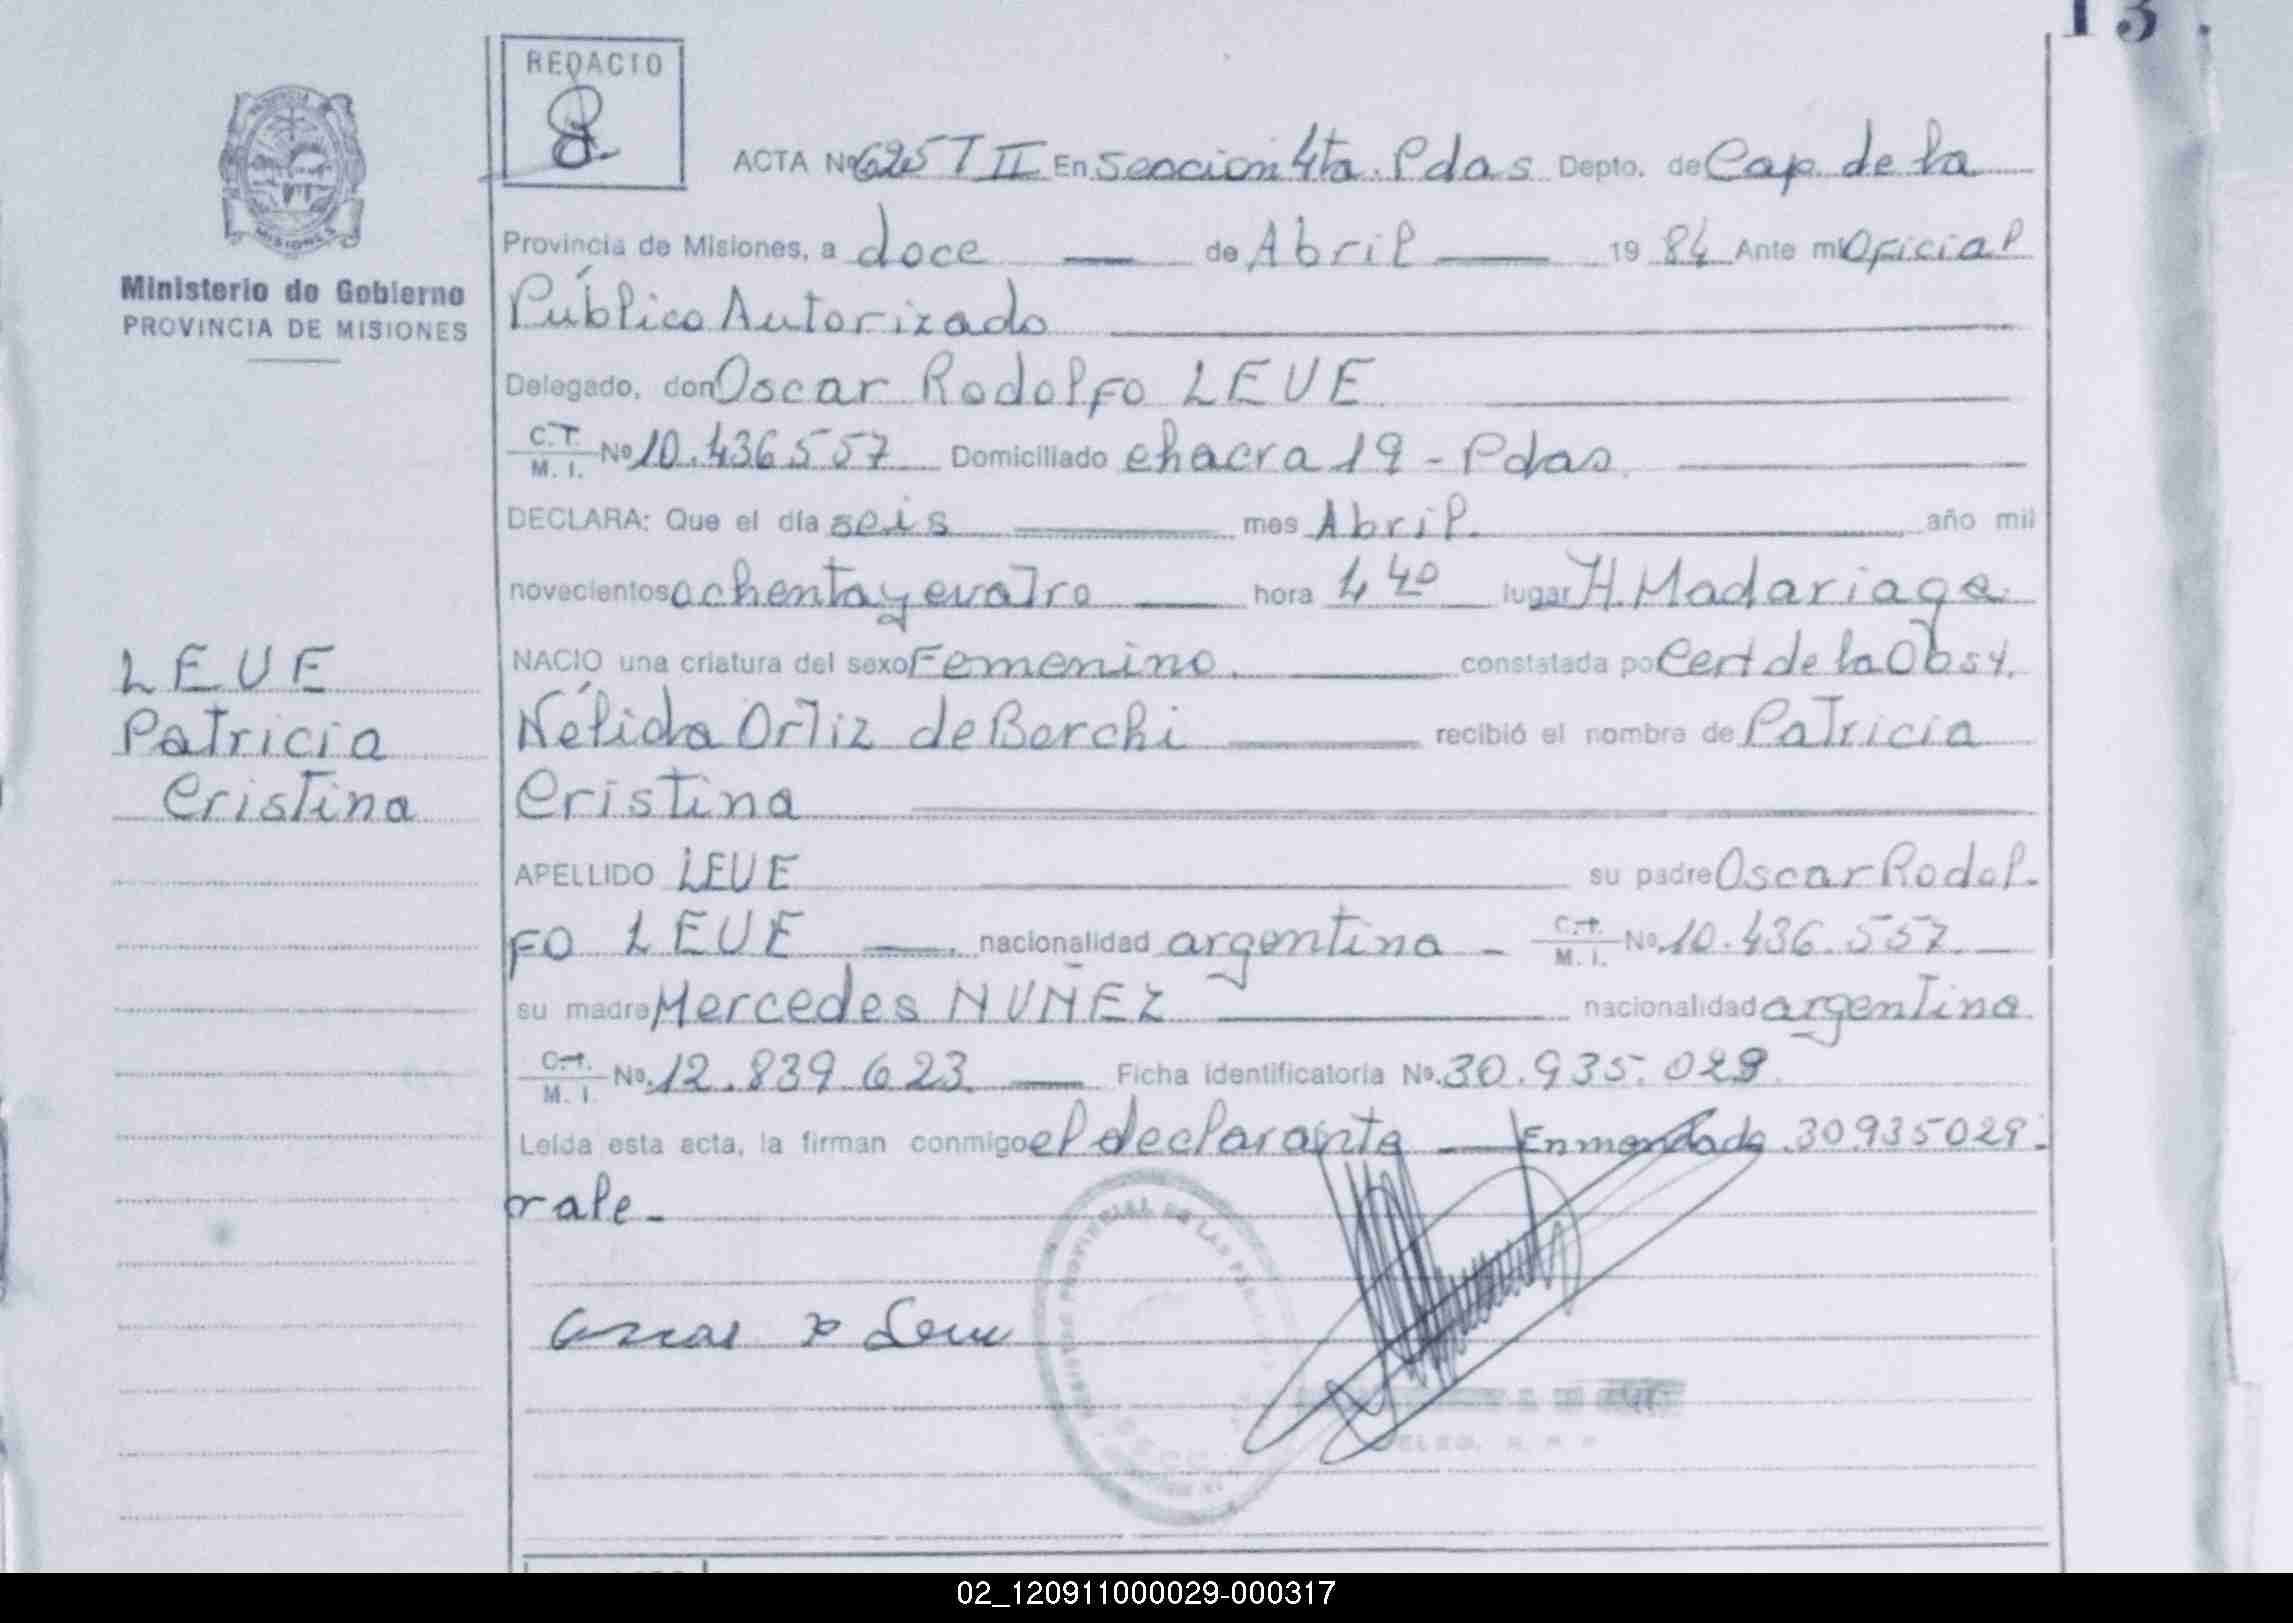 13.
REDACTO
MISIONES
Ministerio de Gobierno
PROVINCIA DE MISIONES
ACTA Nº 625 T II En seccion 4ta. Pdas Depto. de Cap. de la
Provincia de Misiones, a doce de Abril 19 84 Ante mi Oficial
Público Autorizado
Delegado, don Oscar Rodolfo LEUE
C.T. M. I. Nº 10.436557 Domiciliado chacra 19 - Pdas
DECLARA: Que el día seis mes Abril año mil
novecientos ochenta y cuatro hora 4 40 lugar H. Madariaga
NACIO una criatura del sexo Femenino constatada po Cert de la Obst.
Nélida Ortiz de Borchi recibió el nombre de Patricia
Cristina
APELLIDO LEUE su padre Oscar Rodol-
fo LEUE nacionalidad argentina - C.I. M. I. Nº 10.436.557
su madre Mercedes NUÑEZ nacionalidad argentina
C.I. M. I. Nº 12.839.623 Ficha identificatoria Nº. 30.935.029
Leída esta acta, la firman conmigo el declarante Enmendado 30935029.
vale-
LEUE
Patricia
Cristina
02_120911000029-000317